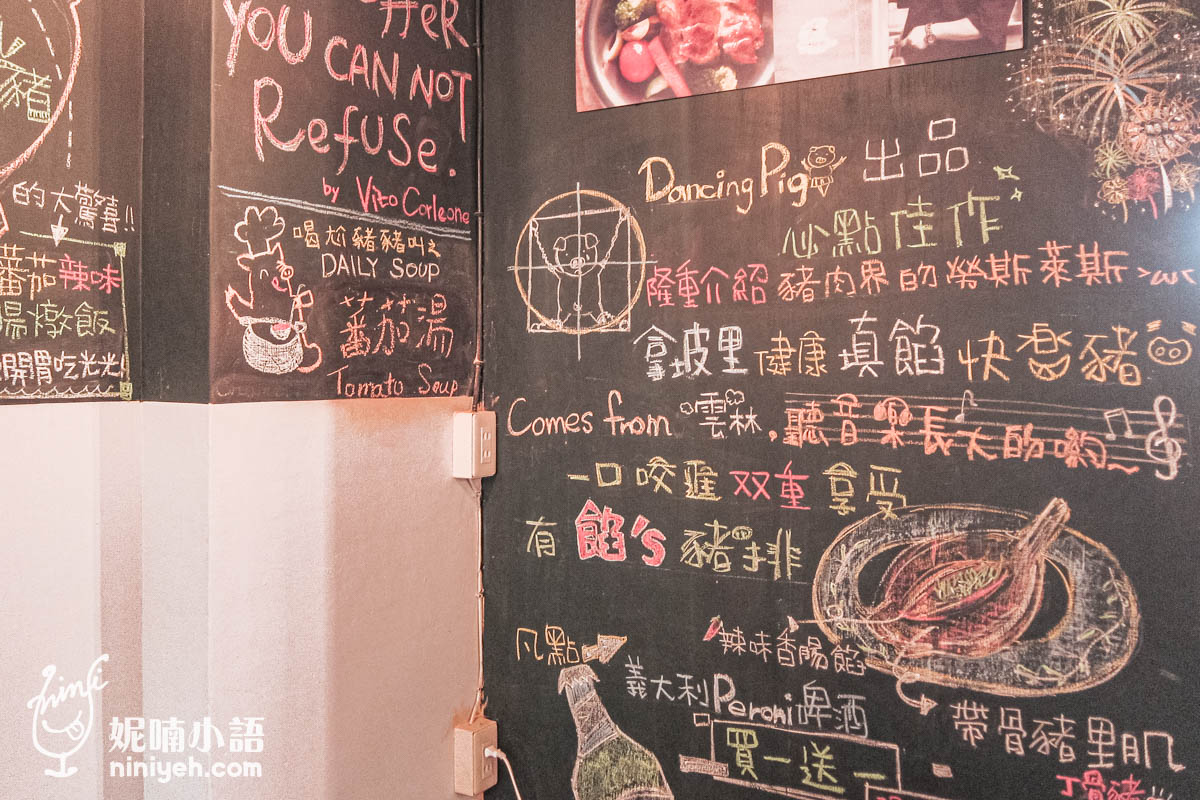 豬
的大驚喜!!
蕃茄辣味
腸燉飯
開胃吃光光!
YOU CAN NOT
Refuse.
by Vito Corleone
喝尬豬豬叫之
DAILY SOUP
蕃茄湯
Tomato Soup
Dancing Pig 出品
必點佳作
隆重介紹 豬肉界的勞斯萊斯
拿坡里健康填餡快樂豬
Comes from 雲林,聽音樂長大的喲~
一口咬涯双重享受
有餡's豬排
辣味香腸餡
帶骨豬里肌
丁骨豬
凡點
義大利Peroni啤酒
買一送一
妮喃小語
niniyeh.com